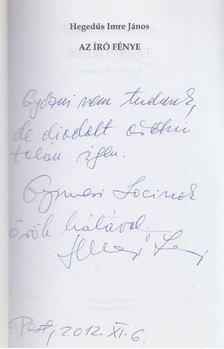 Hegedűs Imre János
AZ ÍRÓ FÉNYE
Győzni nem tudunk,
de diadalt
talán igen.
Gyimesi
örök hálával
Pest, 2012. XI. 6.